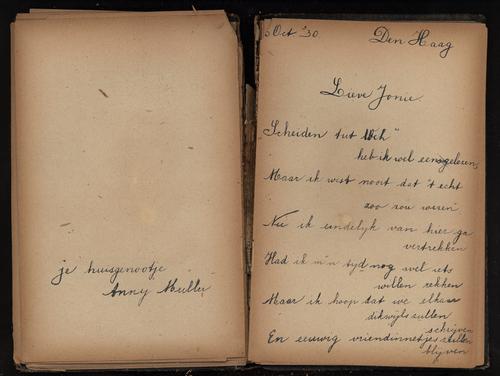 je huisgenootje
Anny Muller
5 Oct '30. Den Haag
Lieve Jonie.
„Scheiden tut Weh"
heb ik wel eens gelezen,
Maar ik wist nooit dat 't echt
zoo zou wezen
Nu ik eindelyk van hier ga
vertrekken
Had ik m'n tyd nog wel iets
willen rekken
Maar ik hoop dat we elkaar
dikwyls zullen
schryven
En eeuwig vriendinnetjes zullen
blyven